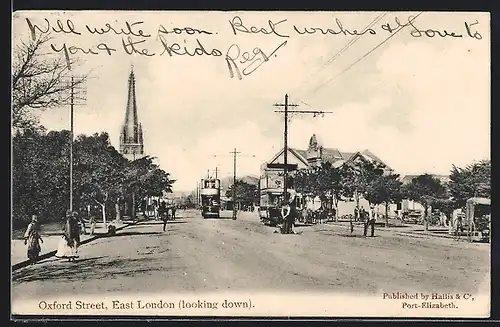 Will write soon. Best wishes & Love to
you & the kids. Reg.
Oxford Street, East London (looking down).
Published by Hallis & Co,
Port-Elizabeth.